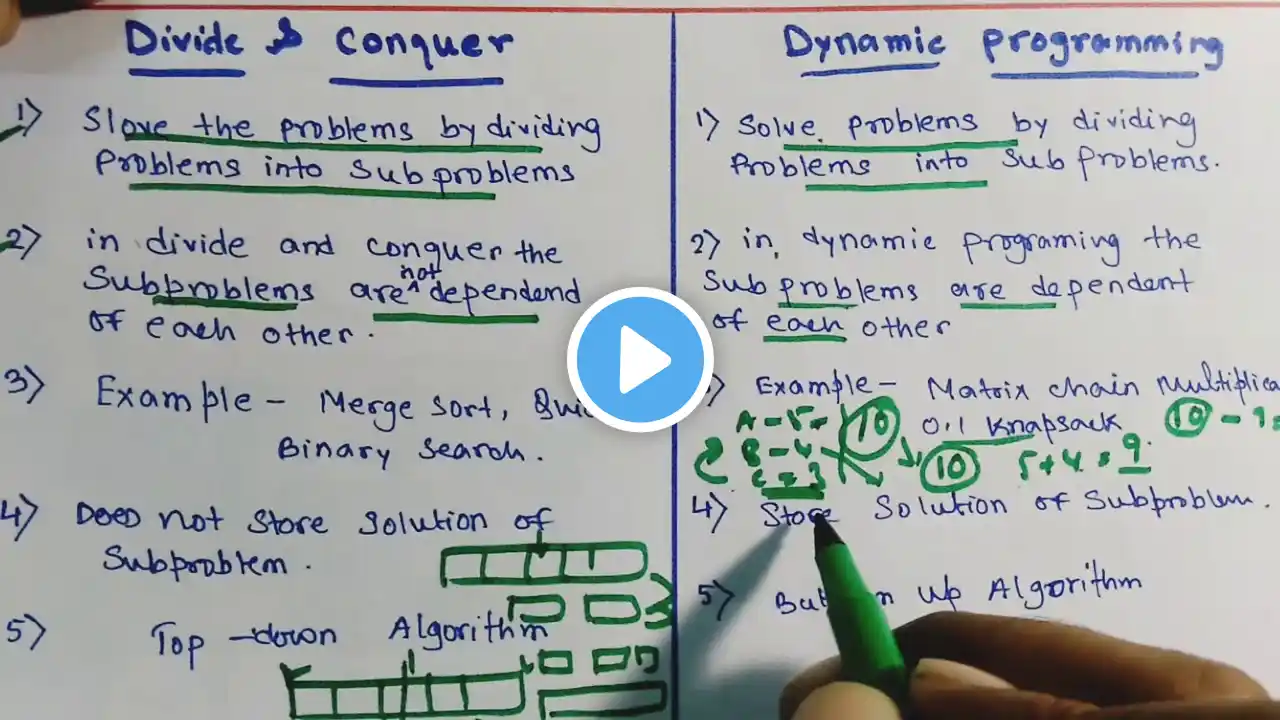 Divide & Conquer
1) Slove the problems by dividing
Problems into Subproblems
2) in divide and conquer the
Subproblems are not dependend
of each other.
3) Example - Merge Sort,
Binary Search.
4) Does not Store Solution of
Subproblem.
5) Top-down Algorithm
Dynamic programming
1) Solve problems by dividing
Problems into Sub Problems.
2) in dynamic programing the
Sub problems are dependent
of each other
Example - Matrix chain
0.1 Knapsack
10
A - 5
B - 4
10
C = 3
10
5+4 = 9
4) Store Solution of Subproblem.
5) up Algorithm